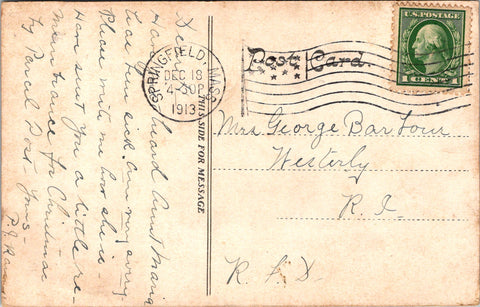 Dear
Have heard Aunt Maria
Please write me how she is
Han sent You a little re-
membrance for Christmas
by Parcel Post. Yours-
THIS SIDE FOR MESSAGE
SPRINGFIELD, MASS.
DEC 18
4-30P
1913
Post Card.
U.S. POSTAGE
1 CENT 1
Mrs George Barbour
Westerly
R. I.
R. F. D.